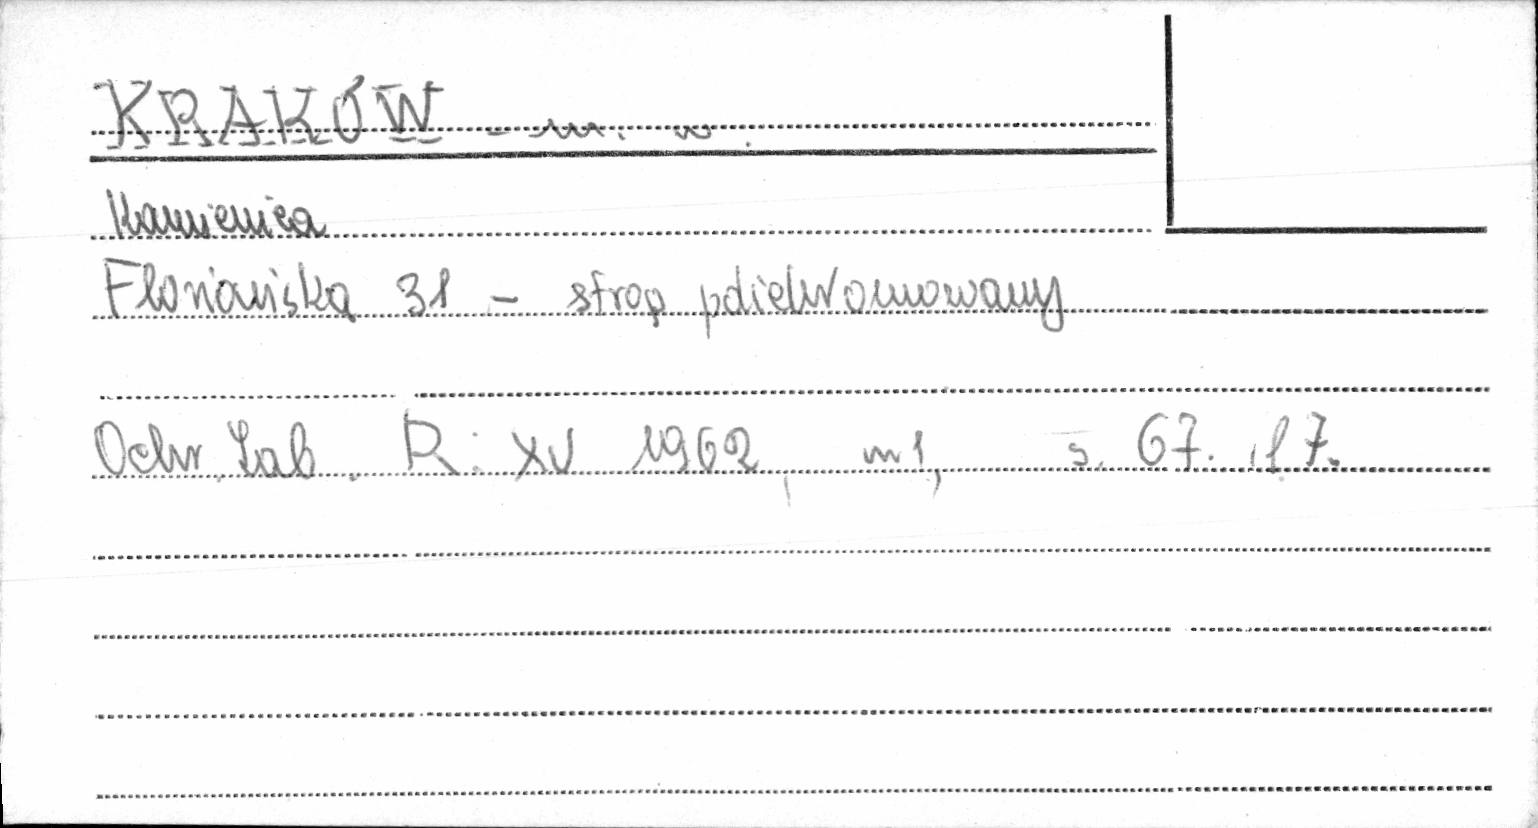 KRAKÓW - m. w.
Kamienica
Floriańska 31 - strop polichromowany
Ochr. Zab. R. XV 1962, nr 1, s. 67. il 7.